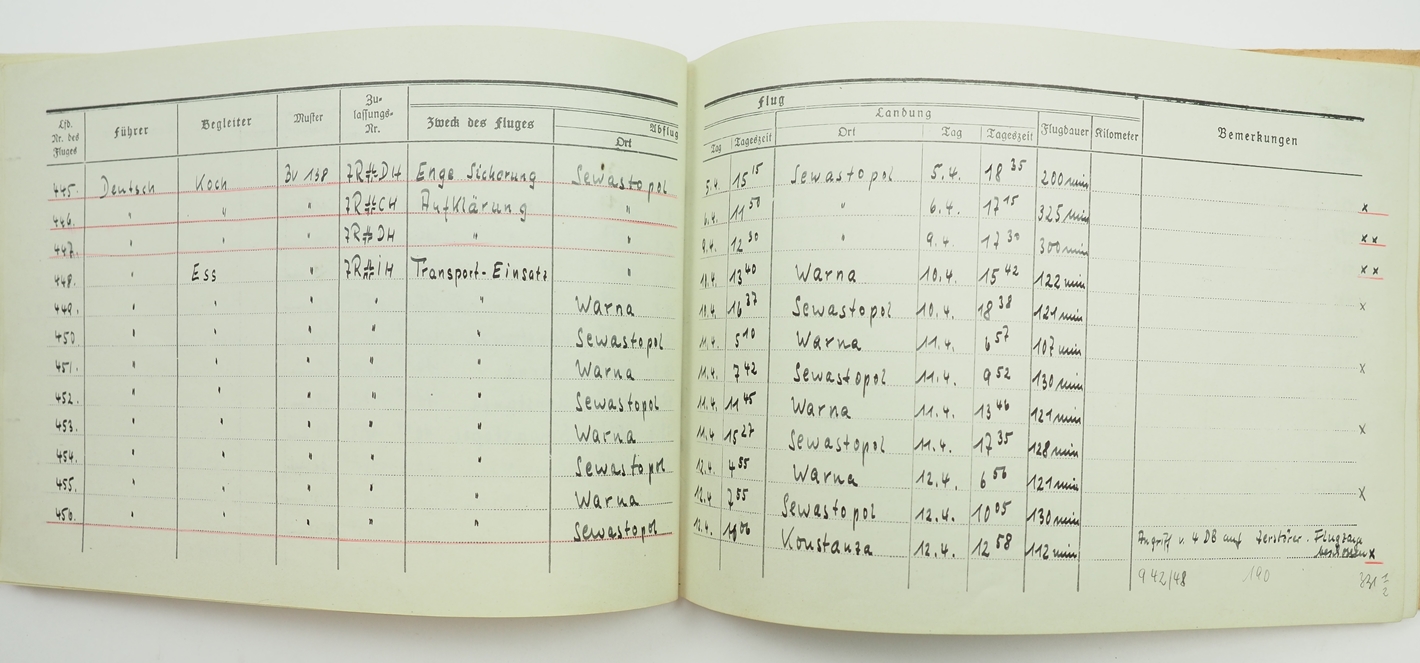 Flug
Lfd. Nr. des Fluges Führer Begleiter Muster Zulassungs-Nr. Zweck des Fluges Abflug Landung Flugdauer Kilometer Bemerkungen
Ort Tag Tageszeit Ort Tag Tageszeit
445. Deutsch Koch BV 138 7R+DH Enge Sicherung Sewastopol 5.4. 15 15 Sewastopol 5.4. 18 35 200 min x
446. " " " 7R+CH Aufklärung " 6.4. 11 50 " 6.4. 17 15 325 min x x
447. " " " 7R+DH " " 9.4. 12 30 " 9.4. 17 30 300 min x x
448. " Ess " 7R+iH Transport-Einsatz " 10.4. 13 40 Warna 10.4. 15 42 122 min
449. " " " " " Warna 10.4. 16 37 Sewastopol 10.4. 18 38 121 min x
450 " " " " " Sewastopol 11.4. 5 10 Warna 11.4. 6 57 107 min
451. " " " " " Warna 11.4. 7 42 Sewastopol 11.4. 9 52 130 min x
452. " " " " " Sewastopol 11.4. 11 45 Warna 11.4. 13 46 121 min
453. " " " " " Warna 11.4 15 27 Sewastopol 11.4. 17 35 128 min x
454. " " " " " Sewastopol 12.4. 4 55 Warna 12.4. 6 56 121 min
455. " " " " " Warna 12.4 7 55 Sewastopol 12.4. 10 05 130 min x
456. " " " " " Sewastopol 12.4. 11 06 Konstanza 12.4. 12 58 112 min Angriff v. 4 DB auf Zerstörer. Flugzeug beschossen x
942/48 190